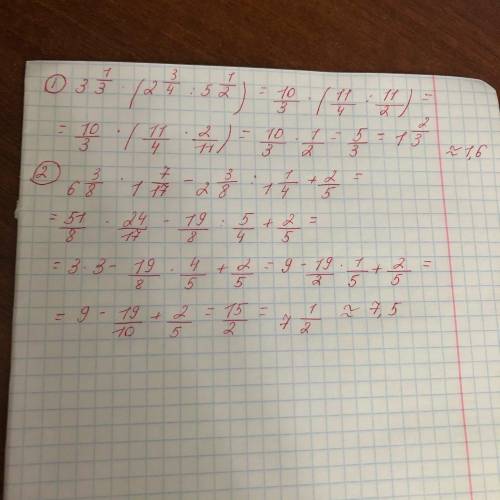 ① 3 1/3 · (2 3/4 : 5 1/2) = 10/3 · (11/4 : 11/2) =
= 10/3 · (11/4 · 2/11) = 10/3 · 1/2 = 5/3 = 1 2/3 ≈ 1,6
② 6 3/8 · 1 7/17 - 2 3/8 : 1 1/4 + 2/5 =
= 51/8 · 24/17 - 19/8 : 5/4 + 2/5 =
= 3 · 3 - 19/8 · 4/5 + 2/5 = 9 - 19/2 · 1/5 + 2/5 =
= 9 - 19/10 + 2/5 = 15/2 = 7 1/2 ≈ 7,5